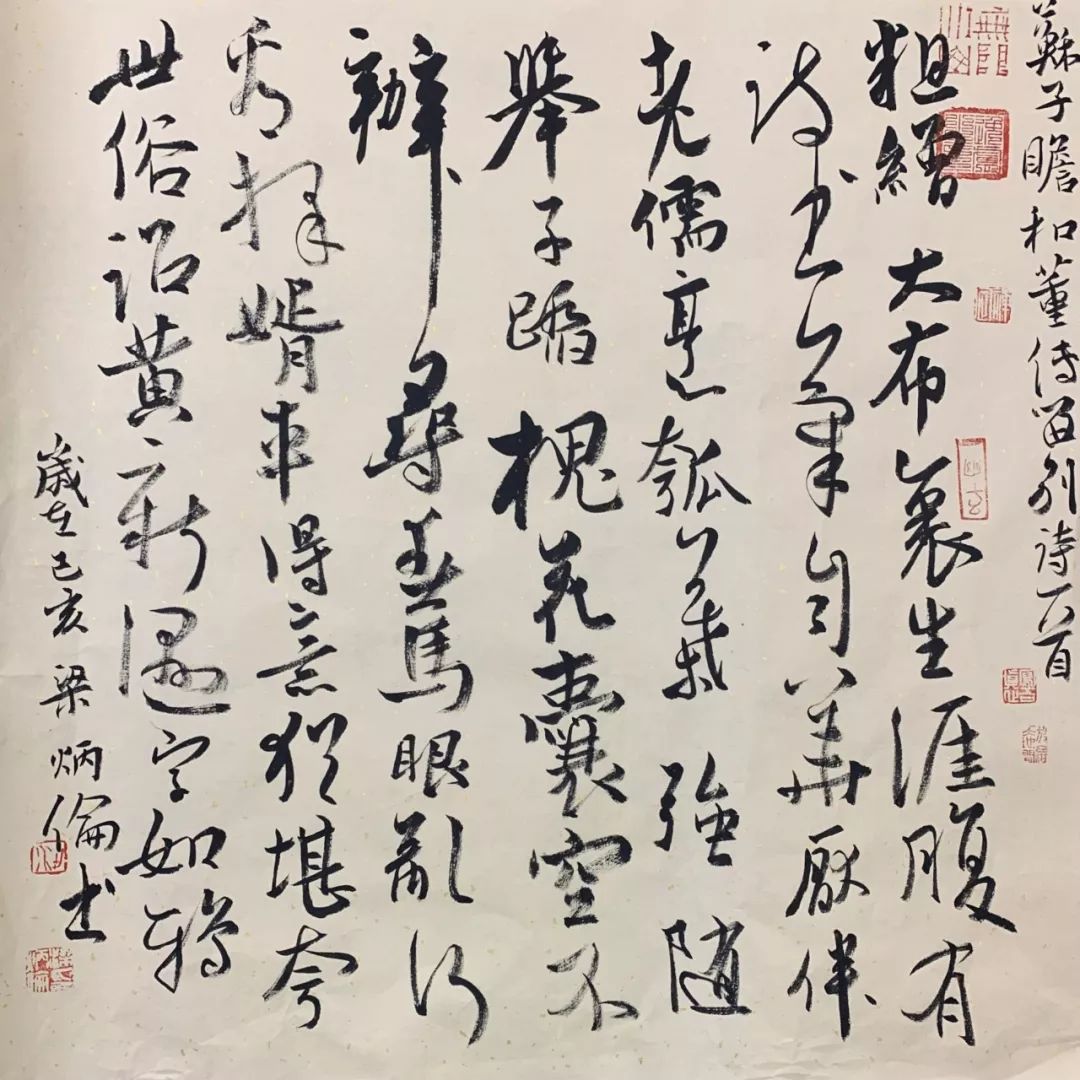 蘇子瞻和董傳留別詩一首
粗繒大布裹生涯腹有
詩書氣自華厭伴
老儒烹瓠葉強隨
舉子踏槐花囊空不
辦尋春馬眼亂行
看擇婿車得意猶堪夸
世俗詔黃新濕字如鴉
歲在己亥梁炳倫書